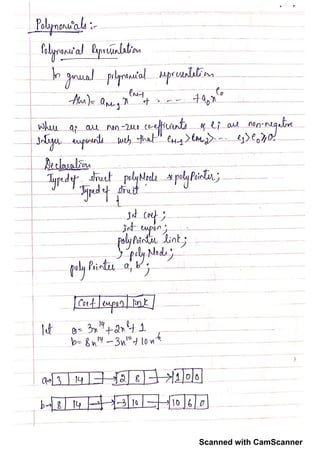 Polynomials :-
Polynomial Representation
In general polynomial representation
A(x) = aₘ₋₁ x^eₘ₋₁ + - - - + a₀x^e₀
where aᵢ are non-zero co-efficients & eᵢ are non-negative
Integer exponents such that eₘ₋₁ > eₘ₋₂ > - - - e₁ > e₀ ≥ 0.
Declaration
Typedef struct polyNode *polyPointer;
Typedef struct
{
int coef ;
int expon ;
polyPointer link ;
} polyNode ;
poly Pointer a, b ;
Coef | expon | link
let a = 3x¹⁴ + 2x⁸ + 1
b = 8x¹⁴ - 3x¹⁰ + 10x⁶
a → 3 | 14 | → 2 | 8 | → 1 | 0 | 0
b → 8 | 14 | → -3 | 10 | → 10 | 6 | 0
Scanned with CamScanner